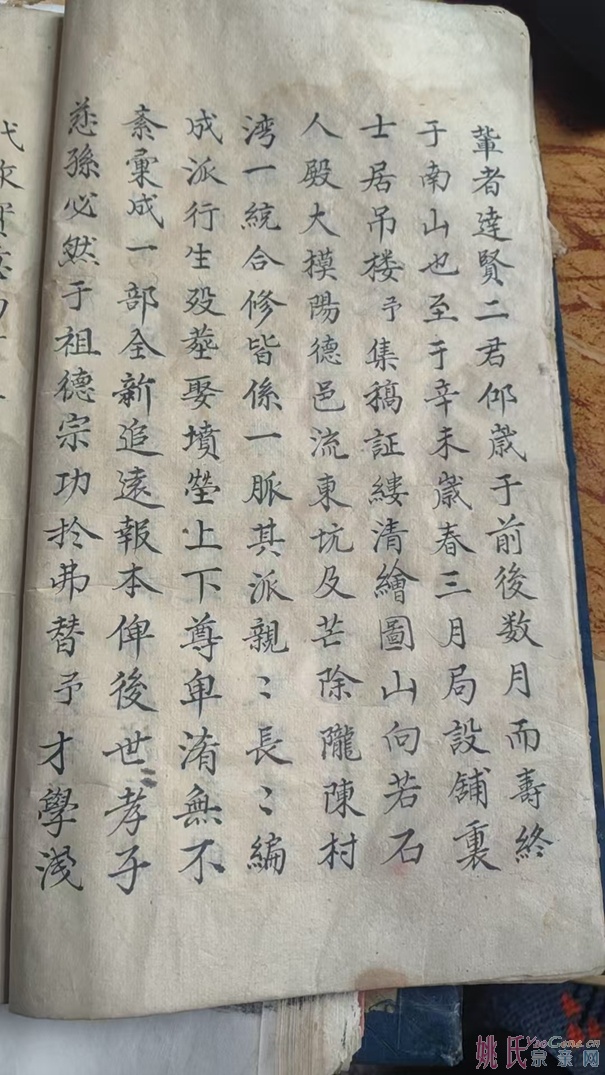 輩者達賢二君仰歲于前後数月而壽終
于南山也至于辛未歲春三月局設舖裏
士居吊楼予集稿証縷清繪圖山向若石
人殿大模陽德邑流東坑及芒除隴陳村
湾一統合修皆係一脈其派親〻長〻編
成派行生殁塟娶墳塋上下尊卑淆無不
紊彙成一部全新追遠報本俾後世孝子
慈孫必然于祖德宗功於弗替予才學淺
姚氏宗亲网
YaoGene.cn